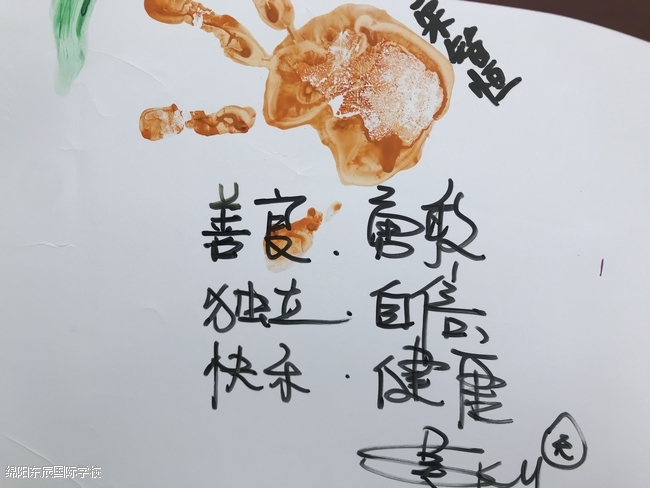 善良．勇敢
独立．自信
快乐．健康
绵阳东辰国际学校